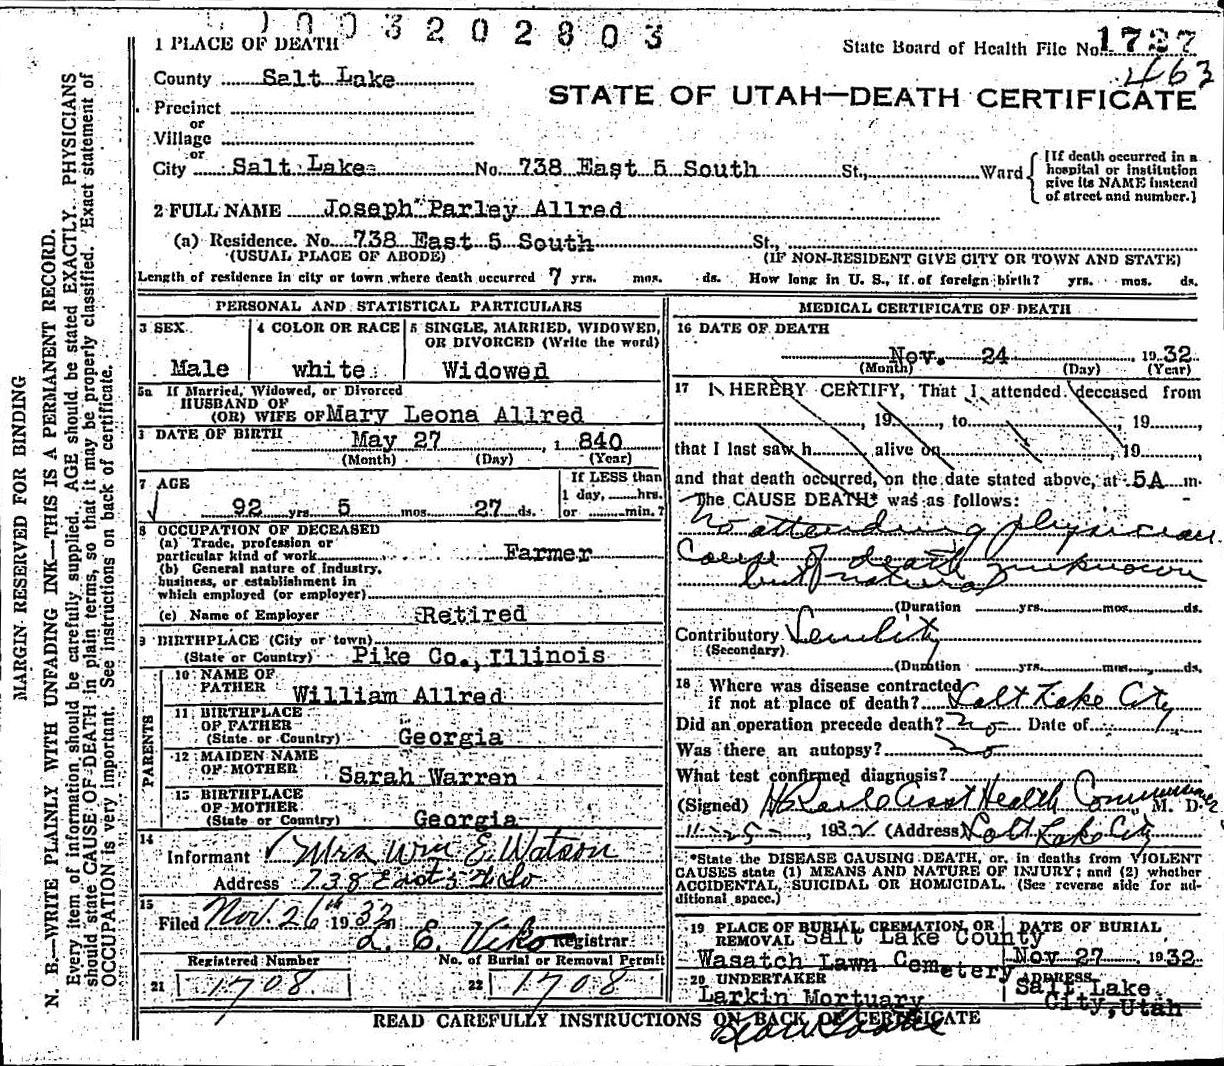 1003202803
1 PLACE OF DEATH
State Board of Health File No. 1727
463
County Salt Lake
STATE OF UTAH—DEATH CERTIFICATE
Precinct
or
Village
or
City Salt Lake No. 738 East 5 South St., Ward
[If death occurred in a hospital or institution give its NAME instead of street and number.]
2 FULL NAME Joseph Parley Allred
(a) Residence. No. 738 East 5 South St.,
(USUAL PLACE OF ABODE) (IF NON-RESIDENT GIVE CITY OR TOWN AND STATE)
Length of residence in city or town where death occurred 7 yrs. mos. ds. How long in U. S., if of foreign birth? yrs. mos. ds.
PERSONAL AND STATISTICAL PARTICULARS
3 SEX
Male
4 COLOR OR RACE
white
5 SINGLE, MARRIED, WIDOWED,
OR DIVORCED (Write the word)
Widowed
5a If Married, Widowed, or Divorced
HUSBAND OF
(OR) WIFE OF Mary Leona Allred
DATE OF BIRTH
May 27, 1840
(Month) (Day) (Year)
7 AGE
92 yrs 5 mos. 27 ds.
If LESS than
1 day, hrs.
or min.?
8 OCCUPATION OF DECEASED
(a) Trade, profession or
particular kind of work Farmer
(b) General nature of industry,
business, or establishment in
which employed (or employer)
(c) Name of Employer Retired
9 BIRTHPLACE (City or town)
(State or Country) Pike Co., Illinois
PARENTS
10 NAME OF
FATHER William Allred
11 BIRTHPLACE
OF FATHER
(State or Country) Georgia
12 MAIDEN NAME
OF MOTHER Sarah Warren
13 BIRTHPLACE
OF MOTHER
(State or Country) Georgia
14
Informant Mrs Wm E. Watson
Address 738 East 5th So
15
Filed Nov. 26th 1932
L. E. Viko Registrar
Registered Number No. of Burial or Removal Permit
21 1708 22 1708
MEDICAL CERTIFICATE OF DEATH
16 DATE OF DEATH
Nov. 24 1932
(Month) (Day) (Year)
17 I HEREBY CERTIFY, That I attended deceased from
, 19, to , 19,
that I last saw h alive on , 19
and that death occurred, on the date stated above, at 5A m.
The CAUSE DEATH* was as follows:
No attending physician
Cause of death unknown
but natural
(Duration yrs. mos. ds.
Contributory Senility
(Secondary)
(Duration yrs. mos. ds.
18 Where was disease contracted
if not at place of death? Salt Lake City
Did an operation precede death? no Date of
Was there an autopsy? no
What test confirmed diagnosis?
(Signed) Asst Health Commissioner M. D.
11-25-, 1932 (Address) Salt Lake City
*State the DISEASE CAUSING DEATH, or, in deaths from VIOLENT
CAUSES state (1) MEANS AND NATURE OF INJURY; and (2) whether
ACCIDENTAL, SUICIDAL OR HOMICIDAL. (See reverse side for ad-
ditional space.)
19 PLACE OF BURIAL CREMATION, OR
REMOVAL Salt Lake County
Wasatch Lawn Cemetery
DATE OF BURIAL
Nov 27 1932
20 UNDERTAKER
Larkin Mortuary
ADDRESS
Salt Lake
City, Utah
READ CAREFULLY INSTRUCTIONS ON BACK OF CERTIFICATE
MARGIN RESERVED FOR BINDING
N. B.—WRITE PLAINLY WITH UNFADING INK—THIS IS A PERMANENT RECORD.
Every item of information should be carefully supplied. AGE should be stated EXACTLY. PHYSICIANS
should state CAUSE OF DEATH in plain terms, so that it may be properly classified. Exact statement of
OCCUPATION is very important. See instructions on back of certificate.